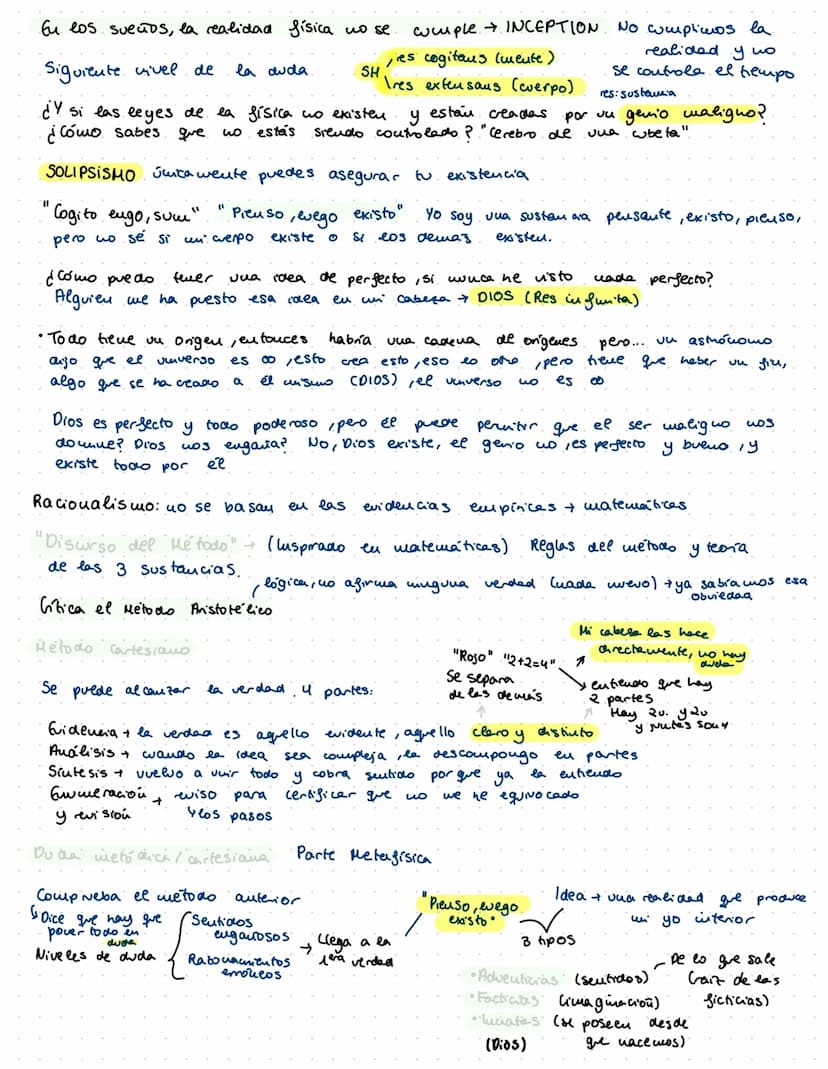 En los sueños, la realidad física no se cumple → INCEPTION No cumplimos la
realidad y no
se controla el tiempo
Siguiente nivel de la duda SH res cogitans (mente)
res extensans (cuerpo)
res: sustancia
¿Y si las leyes de la física no existen y están creadas por un genio maligno?
¿Cómo sabes que no estás siendo controlado? "Cerebro de una cubeta"
SOLIPSISMO únicamente puedes asegurar tu existencia
"Cogito eugo, sum" "Pienso, luego existo" Yo soy una sustancia pensante, existo, pienso,
pero no sé si mi cuerpo existe o si los demás existen.
¿Cómo puedo tener una idea de perfecto, si nunca he visto nada perfecto?
Alguien me ha puesto esa idea en mi cabeza → DIOS (Res infinita)
• Todo tiene un origen, entonces habría una cadena de orígenes pero... un astrónomo
dijo que el universo es ∞, esto crea esto, eso lo otro, pero tiene que haber un fin,
algo que se ha creado a él mismo (DIOS), el universo no es ∞
Dios es perfecto y todo poderoso, pero él puede permitir que el ser maligno nos
domine? Dios nos engaña? No, Dios existe, el genio no, es perfecto y bueno, y
existe todo por él
Racionalismo: no se basan en las evidencias empíricas → matemáticas
"Discurso del Método" → (Inspirado en matemáticas) Reglas del método y teoría
de las 3 sustancias.
lógica, no afirma ninguna verdad (nada nuevo) → ya sabíamos esa
obviedad
Crítica el Método Aristotélico
Método Cartesiano
Mi cabeza las hace
directamente, no hay
duda
"Rojo" "2+2=4"
Se separa
de las demás
entiendo que hay
2 partes
Hay 2u. y 2u
y juntas son 4
Se puede alcanzar la verdad. 4 partes:
Evidencia → la verdad es aquello evidente, aquello claro y distinto
Análisis → cuando la idea sea compleja, la descompongo en partes
Síntesis → vuelvo a unir todo y cobra sentido porque ya la entiendo
Enumeración → reviso para certificar que no me he equivocado
y revisión y los pasos
Duda metódica/cartesiana Parte Metafísica
Comprueba el método anterior
Dice que hay que
poner todo en
duda
Niveles de duda
Sentidos
engañosos
Razonamientos
erróneos
→ Llega a la
1era verdad
"Pienso, luego
existo"
Idea → una realidad que produce
mi yo interior
3 tipos
• Adventicias (sentidos)
• Facticias (imaginación)
• Innatas (se poseen desde
que nacemos)
(Dios)
De lo que sale
(raíz de las
ficticias)